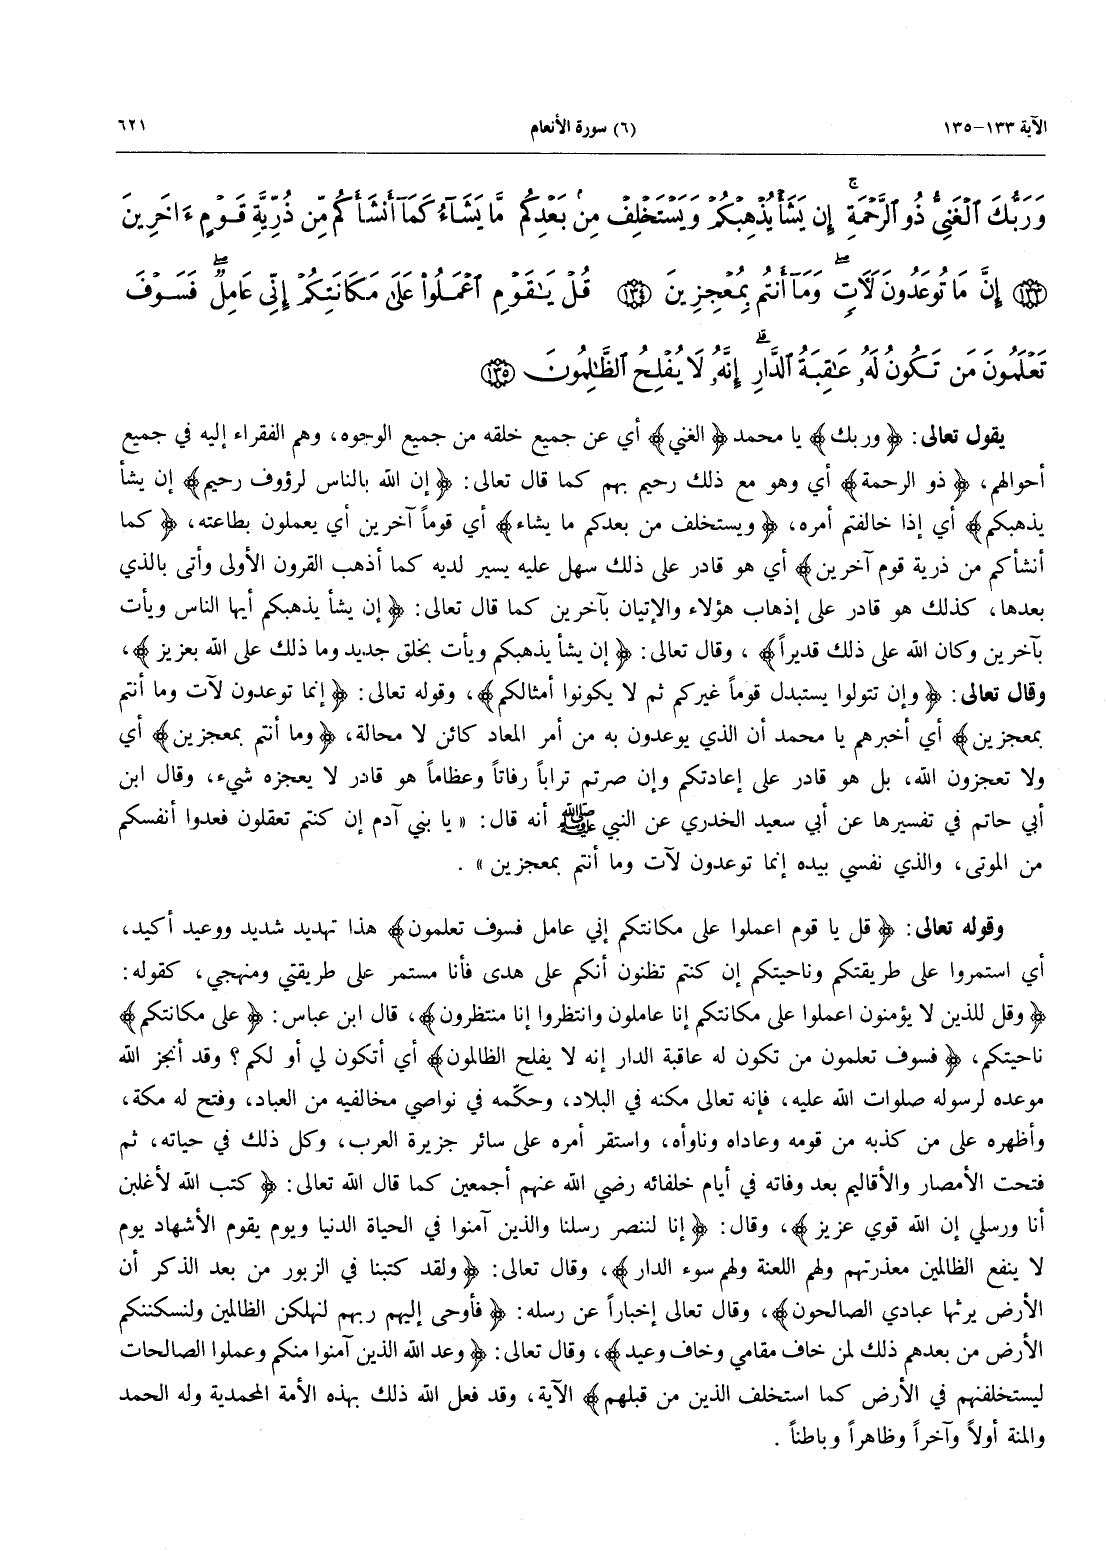 الآية ١٣٣-١٣٥ (٦) سورة الأنعام ٦٢١
وَرَبُّكَ ٱلْغَنِىُّ ذُو ٱلرَّحْمَةِ ۚ إِن يَشَأْ يُذْهِبْكُمْ وَيَسْتَخْلِفْ مِنۢ بَعْدِكُم مَّا يَشَآءُ كَمَآ أَنشَأَكُم مِّن ذُرِّيَّةِ قَوْمٍ ءَاخَرِينَ
﴿١٣٣﴾ إِنَّ مَا تُوعَدُونَ لَـَٔاتٍ ۖ وَمَآ أَنتُم بِمُعْجِزِينَ ﴿١٣٤﴾ قُلْ يَـٰقَوْمِ ٱعْمَلُوا۟ عَلَىٰ مَكَانَتِكُمْ إِنِّى عَامِلٌ ۖ فَسَوْفَ
تَعْلَمُونَ مَن تَكُونُ لَهُۥ عَـٰقِبَةُ ٱلدَّارِ ۗ إِنَّهُۥ لَا يُفْلِحُ ٱلظَّـٰلِمُونَ ﴿١٣٥﴾
يقول تعالى: ﴿وربك﴾ يا محمد ﴿الغني﴾ أي عن جميع خلقه من جميع الوجوه، وهم الفقراء إليه في جميع
أحوالهم، ﴿ذو الرحمة﴾ أي وهو مع ذلك رحيم بهم كما قال تعالى: ﴿إن الله بالناس لرؤوف رحيم﴾ إن يشأ
يذهبكم﴾ أي إذا خالفتم أمره، ﴿ويستخلف من بعدكم ما يشاء﴾ أي قوماً آخرين أي يعملون بطاعته، ﴿كما
أنشأكم من ذرية قوم آخرين﴾ أي هو قادر على ذلك سهل عليه يسير لديه كما أذهب القرون الأولى وأتى بالذي
بعدها، كذلك هو قادر على إذهاب هؤلاء والإتيان بآخرين كما قال تعالى: ﴿إن يشأ يذهبكم أيها الناس ويأت
بآخرين وكان الله على ذلك قديراً﴾ ، وقال تعالى: ﴿إن يشأ يذهبكم ويأت بخلق جديد وما ذلك على الله بعزيز﴾،
وقال تعالى: ﴿وإن تتولوا يستبدل قوماً غيركم ثم لا يكونوا أمثالكم﴾، وقوله تعالى: ﴿إنما توعدون لآت وما أنتم
بمعجزين﴾ أي أخبرهم يا محمد أن الذي يوعدون به من أمر المعاد كائن لا محالة، ﴿وما أنتم بمعجزين﴾ أي
ولا تعجزون الله، بل هو قادر على إعادتكم وإن صرتم تراباً رفاتاً وعظاماً هو قادر لا يعجزه شيء، وقال ابن
أبي حاتم في تفسيرها عن أبي سعيد الخدري عن النبي ﷺ أنه قال: « يا بني آدم إن كنتم تعقلون فعدوا أنفسكم
من الموتى، والذي نفسي بيده إنما توعدون لآت وما أنتم بمعجزين » .
وقوله تعالى: ﴿قل يا قوم اعملوا على مكانتكم إني عامل فسوف تعلمون﴾ هذا تهديد شديد ووعيد أكيد،
أي استمروا على طريقتكم وناحيتكم إن كنتم تظنون أنكم على هدى فأنا مستمر على طريقتي ومنهجي، كقوله:
﴿وقل للذين لا يؤمنون اعملوا على مكانتكم إنا عاملون وانتظروا إنا منتظرون﴾، قال ابن عباس: ﴿على مكانتكم﴾
ناحيتكم، ﴿فسوف تعلمون من تكون له عاقبة الدار إنه لا يفلح الظالمون﴾ أي أتكون لي أو لكم؟ وقد أنجز الله
موعده لرسوله صلوات الله عليه، فإنه تعالى مكنه في البلاد، وحكّمه في نواصي مخالفيه من العباد، وفتح له مكة،
وأظهره على من كذبه من قومه وعاداه وناوأه، واستقر أمره على سائر جزيرة العرب، وكل ذلك في حياته، ثم
فتحت الأمصار والأقاليم بعد وفاته في أيام خلفائه رضي الله عنهم أجمعين كما قال الله تعالى: ﴿كتب الله لأغلبن
أنا ورسلي إن الله قوي عزيز﴾، وقال: ﴿إنا لننصر رسلنا والذين آمنوا في الحياة الدنيا ويوم يقوم الأشهاد يوم
لا ينفع الظالمين معذرتهم ولهم اللعنة ولهم سوء الدار﴾، وقال تعالى: ﴿ولقد كتبنا في الزبور من بعد الذكر أن
الأرض يرثها عبادي الصالحون﴾، وقال تعالى إخباراً عن رسله: ﴿فأوحى إليهم ربهم لنهلكن الظالمين ولنسكننكم
الأرض من بعدهم ذلك لمن خاف مقامي وخاف وعيد﴾، وقال تعالى: ﴿وعد الله الذين آمنوا منكم وعملوا الصالحات
ليستخلفنهم في الأرض كما استخلف الذين من قبلهم﴾ الآية، وقد فعل الله ذلك بهذه الأمة المحمدية وله الحمد
والمنة أولاً وآخراً وظاهراً وباطناً .